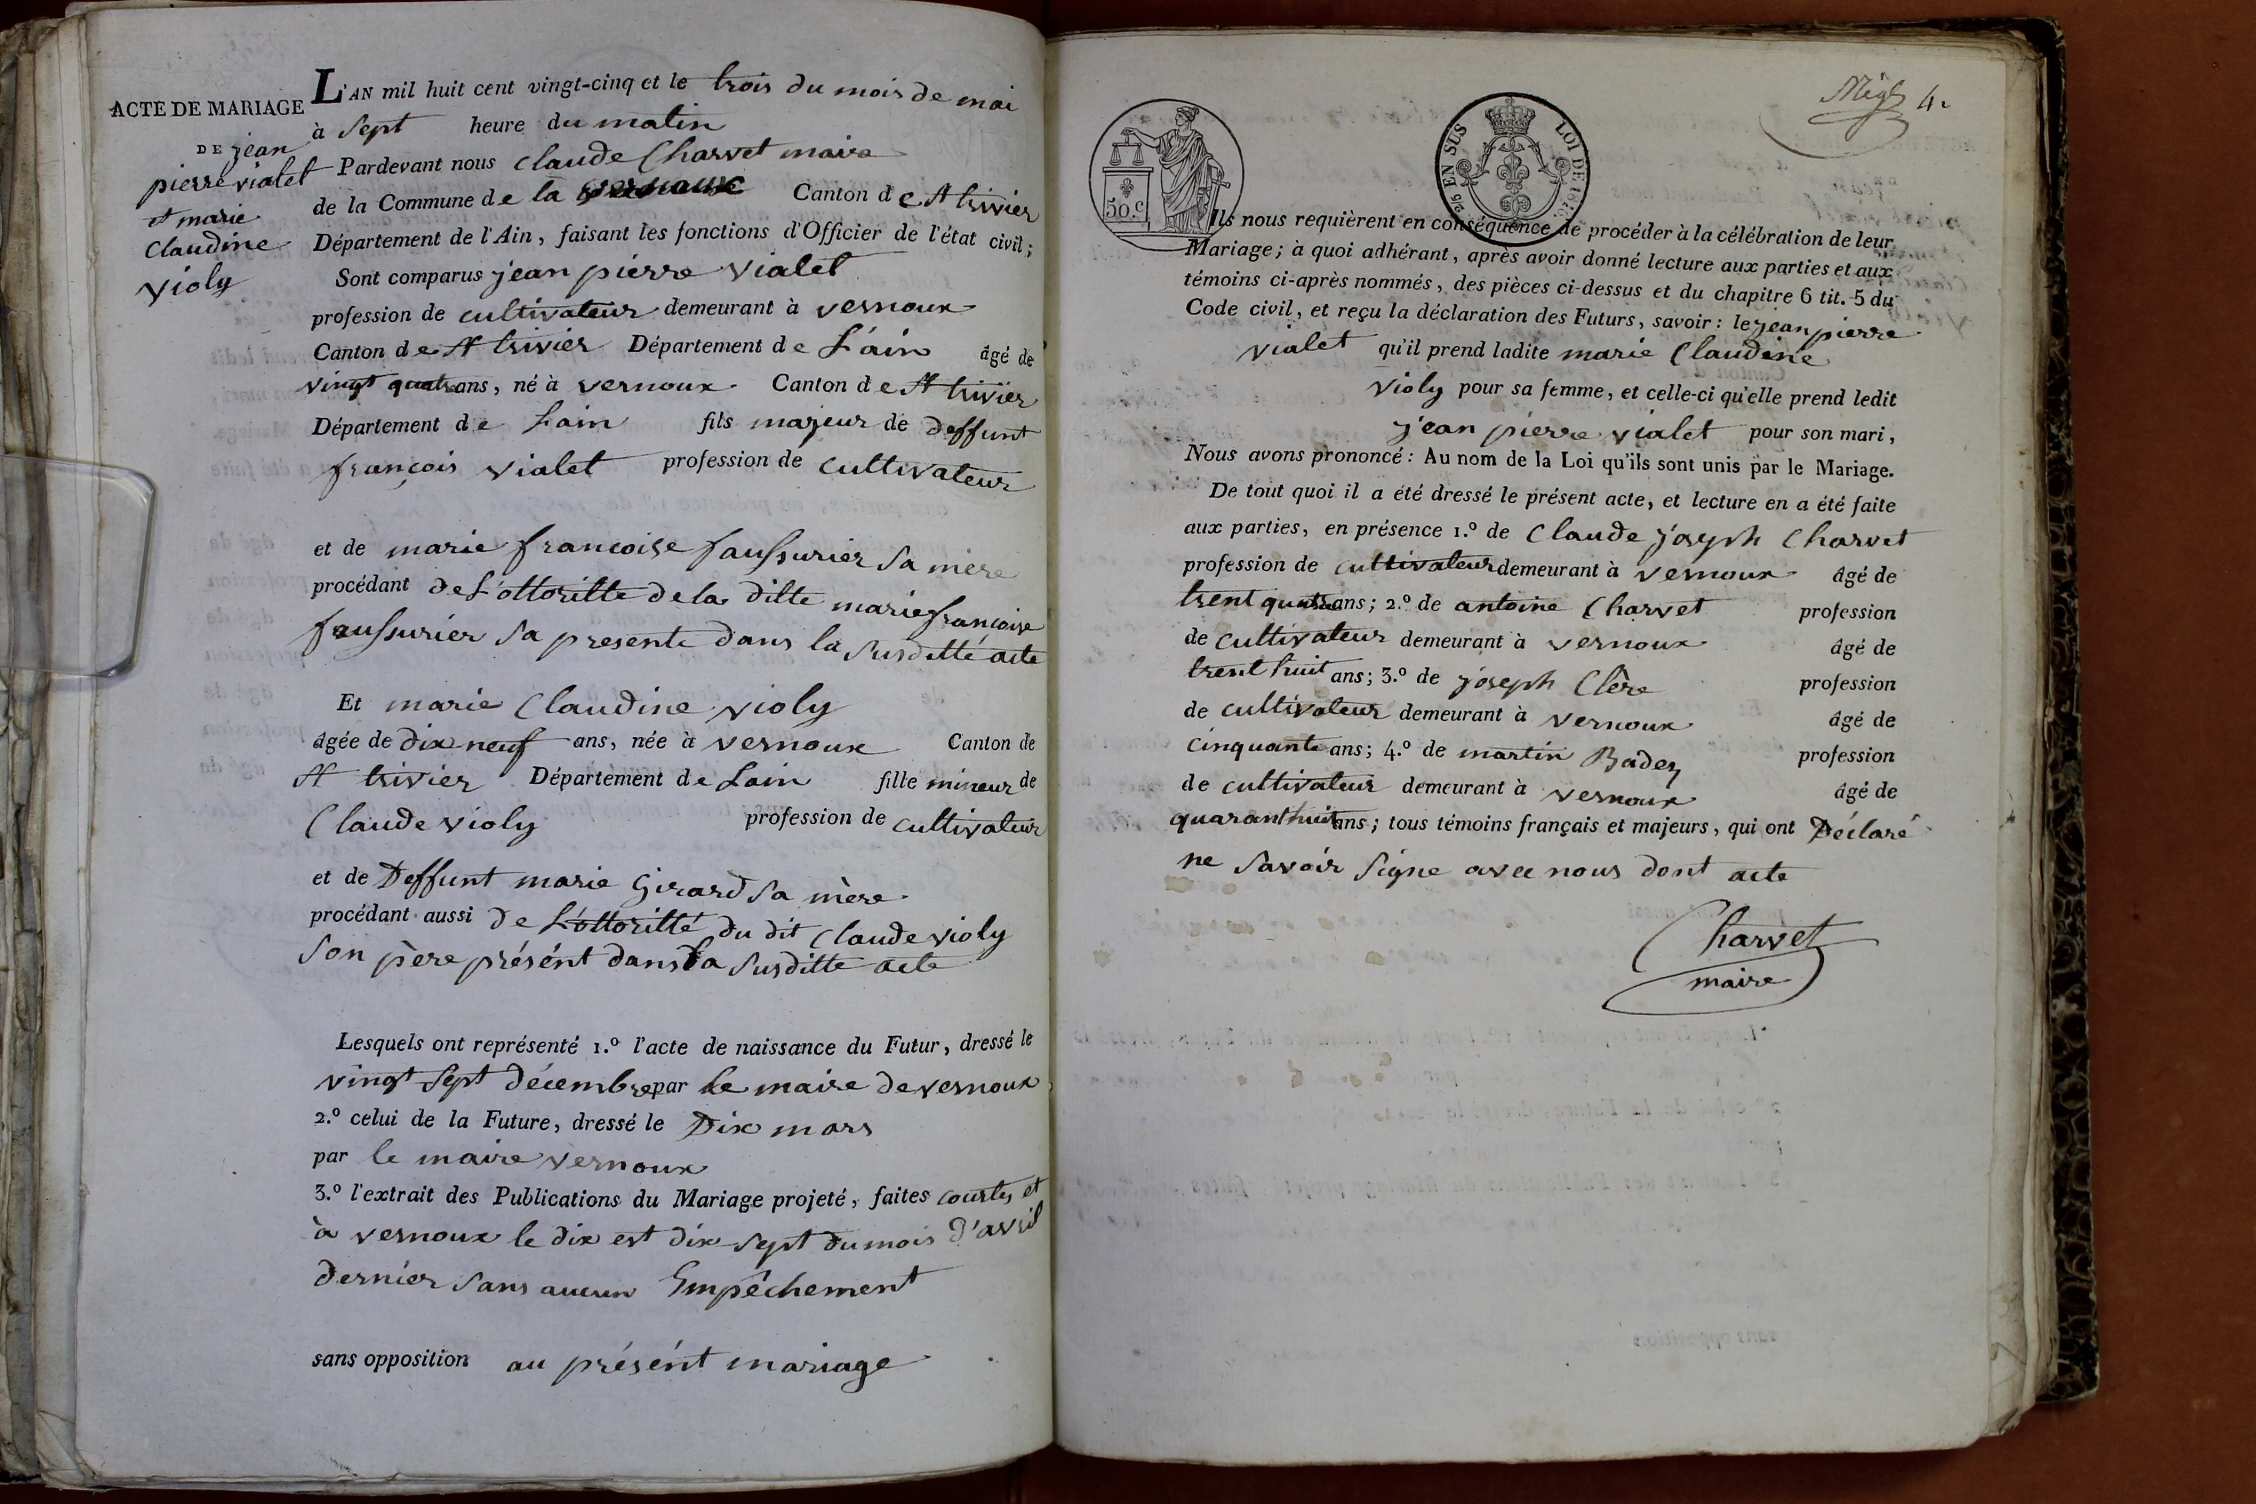 ACTE DE MARIAGE
DE jean
pierre vialet
et marie
Claudine
violy
L'AN mil huit cent vingt-cinq et le trois du mois de mai
à sept heure du matin
Pardevant nous Claude Charvet maire
de la Commune de la vernoux Canton de St trivier
Département de l'Ain, faisant les fonctions d'Officier de l'état civil;
Sont comparus jean pierre vialet
profession de cultivateur demeurant à vernoux
Canton de St trivier Département de L'ain âgé de
vingt quatre ans, né à vernoux Canton de St trivier
Département de Lain fils majeur de deffunt
françois vialet profession de cultivateur
et de marie francoise faussurier sa mère
procédant de L'ottoritte de la ditte marie francoise
faussurier sa presente dans la susditte acte
Et marie Claudine violy
âgée de dix neuf ans, née à vernoux Canton de
St trivier Département de Lain fille mineur de
Claude violy profession de cultivateur
et de Deffunt marie Girard sa mère
procédant aussi de L'ottoritté du dit Claude violy
son père présént dans la susditte acte
Lesquels ont représenté 1.º l'acte de naissance du Futur, dressé le
vingt sept décembre par le maire de vernoux
2.º celui de la Future, dressé le Dix mars
par le maire vernoux
3.º l'extrait des Publications du Mariage projeté, faites et
à vernoux le dix est dix sept du mois d'avril
dernier sans aucun Empêchement
sans opposition au présént mariage
4.
50.c
25 EN SUS LOI DE 1816.
Ils nous requièrent en conséquence de procéder à la célébration de leur
Mariage; à quoi adhérant, après avoir donné lecture aux parties et aux
témoins ci-après nommés, des pièces ci-dessus et du chapitre 6 tit. 5 du
Code civil, et reçu la déclaration des Futurs, savoir: le jean pierre
vialet qu'il prend ladite marie Claudine
violy pour sa femme, et celle-ci qu'elle prend ledit
jean pierre vialet pour son mari,
Nous avons prononcé: Au nom de la Loi qu'ils sont unis par le Mariage.
De tout quoi il a été dressé le présent acte, et lecture en a été faite
aux parties, en présence 1.º de Claude joseph Charvet
profession de cultivateur demeurant à vernoux âgé de
trent quatre ans; 2.º de antoine Charvet profession
de cultivateur demeurant à vernoux âgé de
trent huit ans; 3.º de joseph Clêre profession
de cultivateur demeurant à vernoux âgé de
cinquante ans; 4.º de martin Badez profession
de cultivateur demeurant à vernoux âgé de
quarant huit ans; tous témoins français et majeurs, qui ont Déclaré
ne savoir signe avec nous dont acte
Charvet
maire